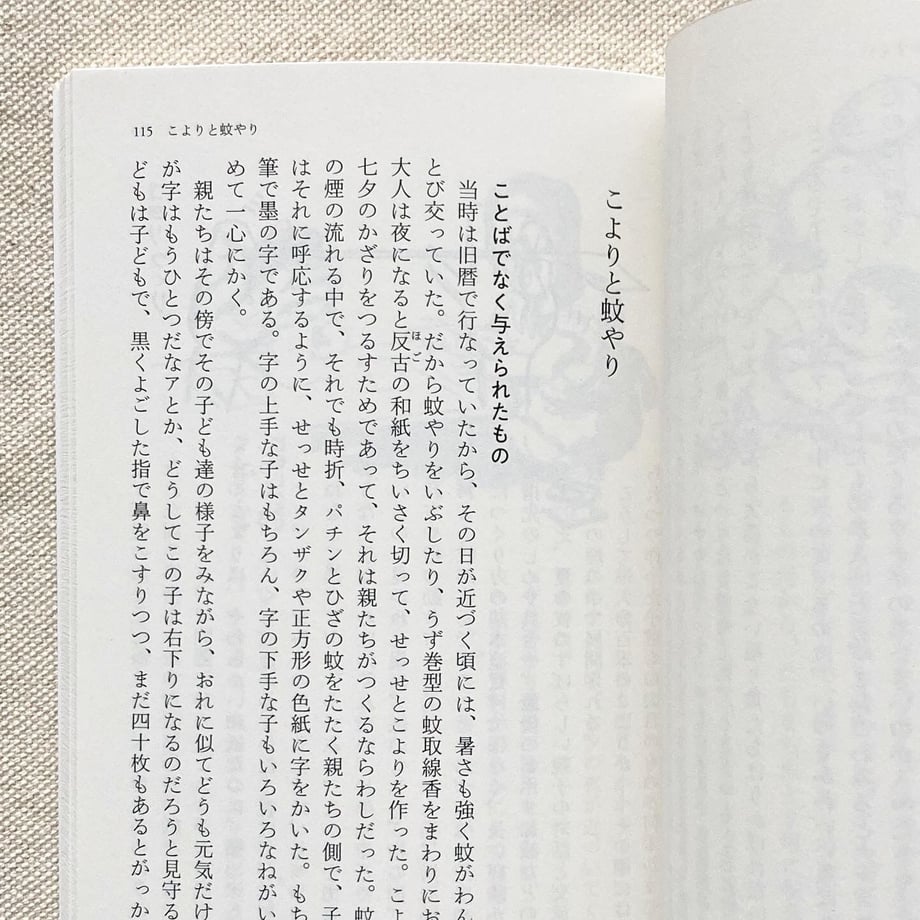 115 こよりと蚊やり
こよりと蚊やり
ことばでなく与えられたもの
当時は旧暦で行なっていたから、その日が近づく頃には、暑さも強く蚊がわん
とび交っていた。だから蚊やりをいぶしたり、うず巻型の蚊取線香をまわりにお
大人は夜になると反古の和紙をちいさく切って、せっせとこよりを作った。こよ
ほご
七夕のかざりをつるすためであって、それは親たちがつくるならわしだった。蚊
の煙の流れる中で、それでも時折、パチンとひざの蚊をたたく親たちの側で、子
はそれに呼応するように、せっせとタンザクや正方形の色紙に字をかいた。もち
筆で墨の字である。字の上手な子はもちろん、字の下手な子もいろいろなねがい
めて一心にかく。
親たちはその傍でその子ども達の様子をみながら、おれに似てどうも元気だけ
が字はもうひとつだなァとか、どうしてこの子は右下りになるのだろうと見守る
どもは子どもで、黒くよごした指で鼻をこすりつつ、まだ四十枚もあるとがっか